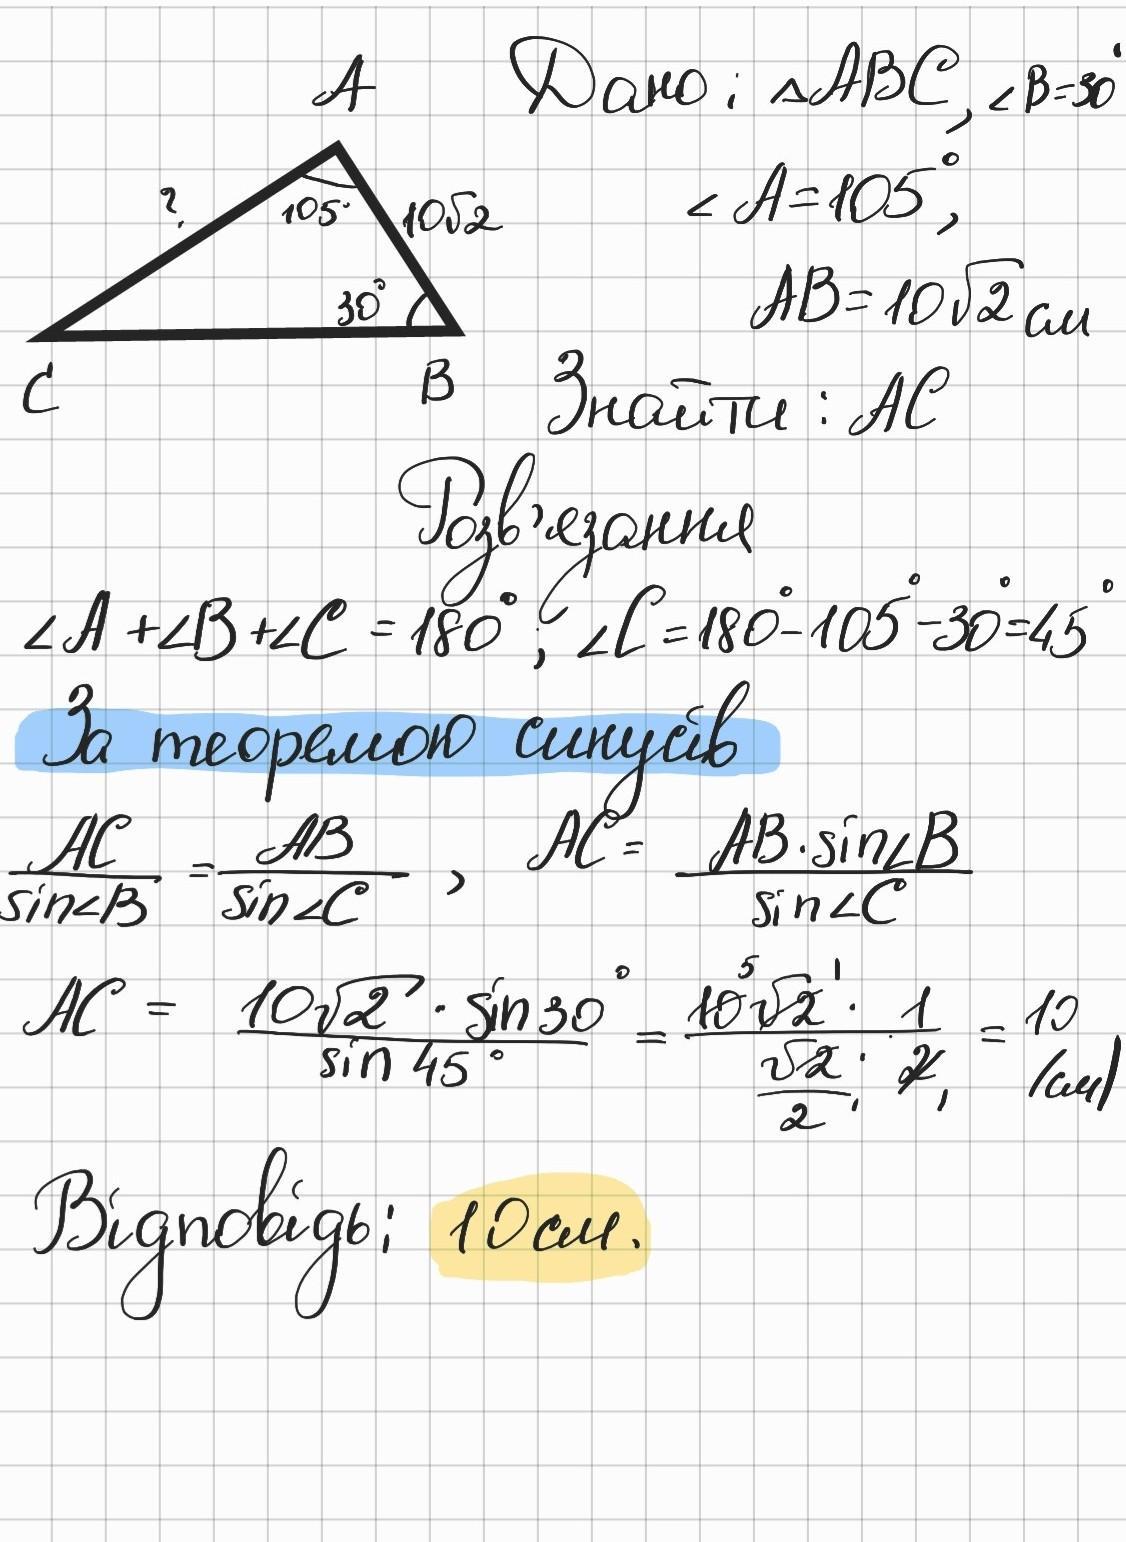 A
Дано: △ABC, ∠B=30°
?
105°
10√2
∠A=105°,
30°
AB=10√2 см
C
B
Знайти: AC
Розв'язання
∠A+∠B+∠C=180°; ∠C=180°-105°-30°=45°
За теоремою синусів
AC/sin∠B = AB/sin∠C, AC = AB·sin∠B/sin∠C
AC = 10√2·sin30°/sin45° = 10√2·1/(√2/2·2) = 10 (см)
Відповідь: 10 см.